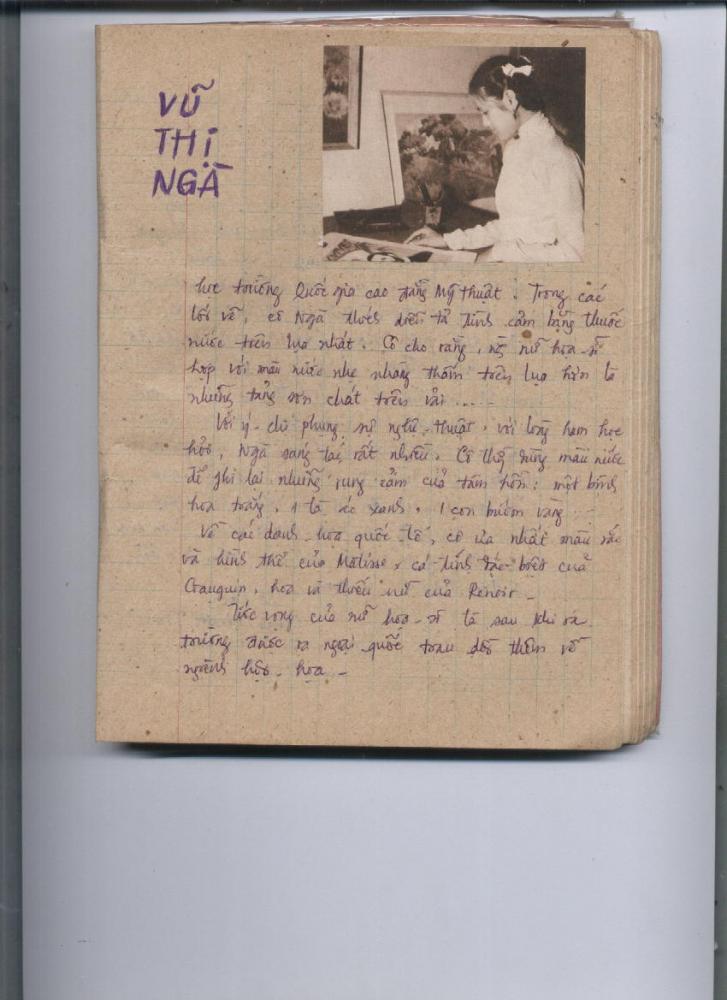 VŨ
THỊ
NGÀ
học trường Quốc gia cao đẳng Mỹ thuật. Trong các
lối vẽ, cô Ngà thích diễn tả tình cảm bằng thuốc
nước trên lụa nhất. Cô cho rằng, nữ họa-sĩ
hợp với mầu nước nhẹ nhàng thấm trên lụa hơn là
những tảng sơn chát trên vải ....
Với ý-chí phụng sự nghệ-thuật, với lòng ham học
hỏi, Ngà sáng tác rất nhiều. Cô thg dùng mầu nước
để ghi lại những rung cảm của tâm hồn: một bình
hoa trắng, 1 tà áo xanh, 1 con bướm vàng ...
Về các danh-họa quốc tế, cô ưa nhất mầu sắc
và hình thể của Matisse, cá tính đặc-biệt của
Gauguin, hoa và thiếu nữ của Renoir -
Ước vọng của nữ họa-sĩ là sau khi ra
trường được ra ngoại quốc trau dồi thêm về
ngành hội-họa -